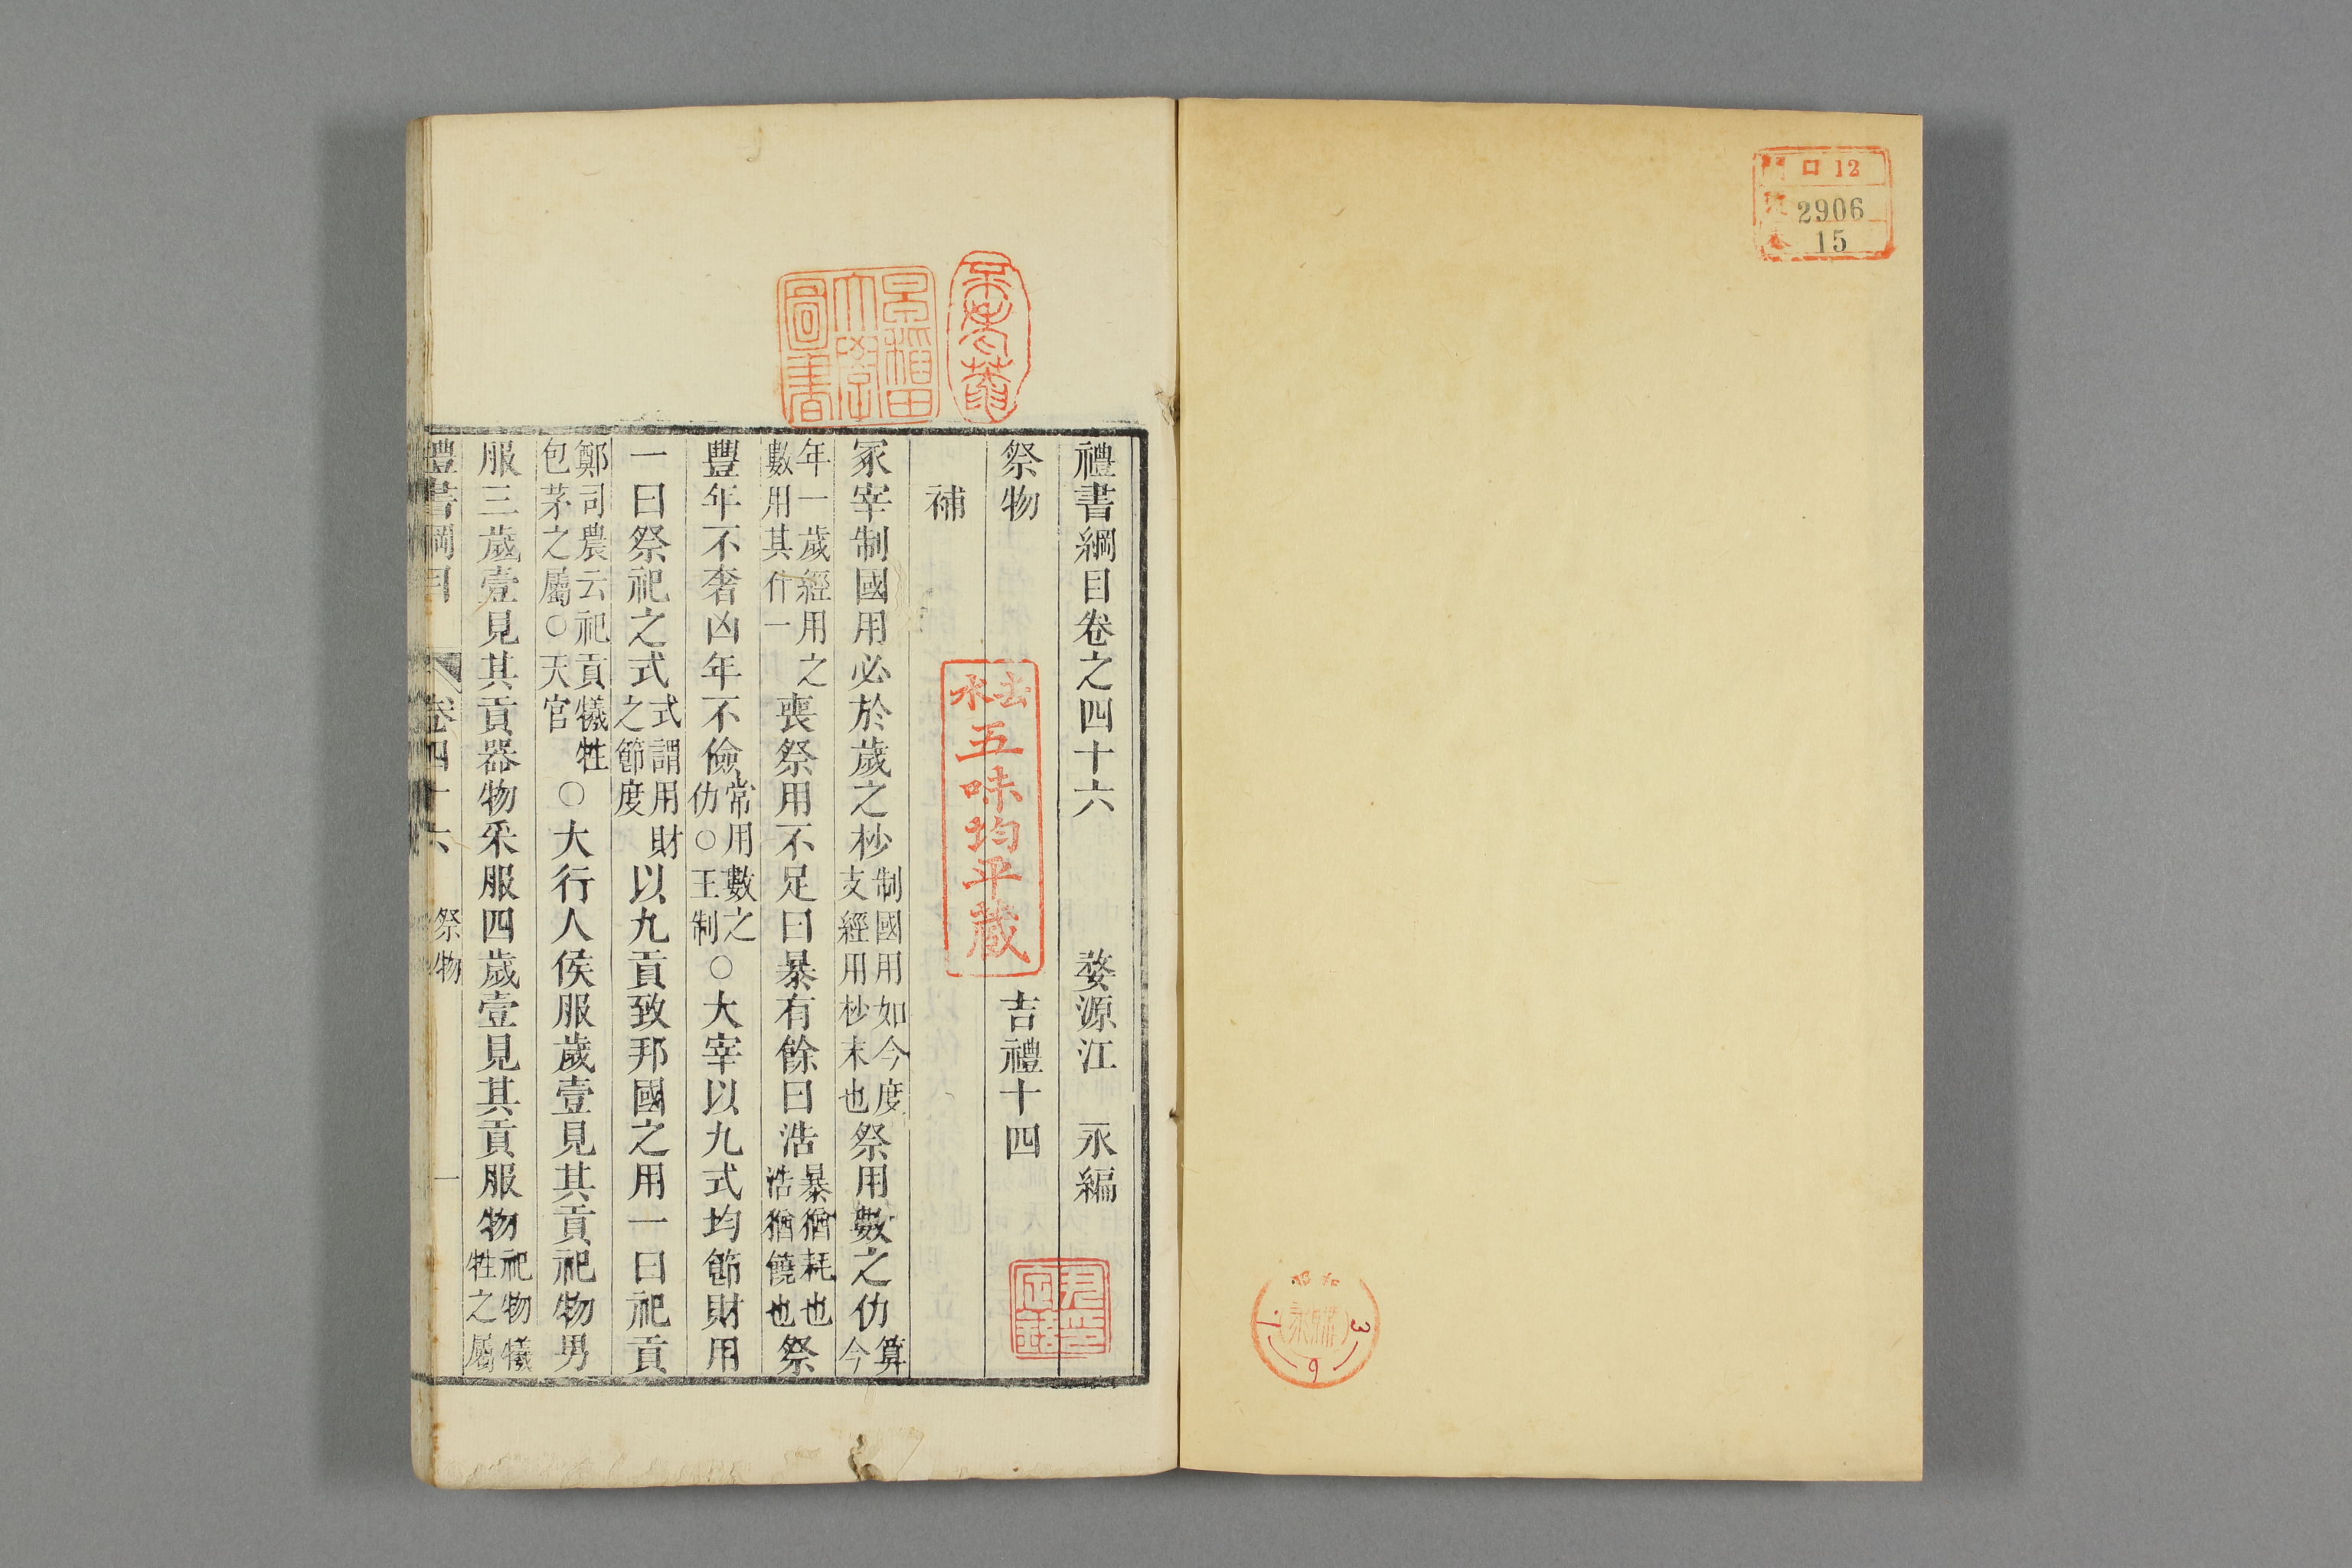 口 12
2906
15
3
6
禮書綱目卷之四十六　婺源江　永編
祭物　吉禮十四
補
冢宰制國用必於歲之杪制國用如今度支經用杪末也祭用數之仂算今
年一歲經用之數用其什一喪祭用不足曰暴有餘曰浩暴猶耗也浩猶饒也祭
豐年不奢凶年不儉常用數之仂○王制○大宰以九式均節財用
一曰祭祀之式式謂用財之節度以九貢致邦國之用一曰祀貢
鄭司農云祀貢犧牲包茅之屬○天官○大行人侯服歲壹見其貢祀物男
服三歲壹見其貢器物采服四歲壹見其貢服物祀物犧牲之屬
禮書綱目　卷四十六　祭物　一
早稻田大學圖書
五味均平蔵